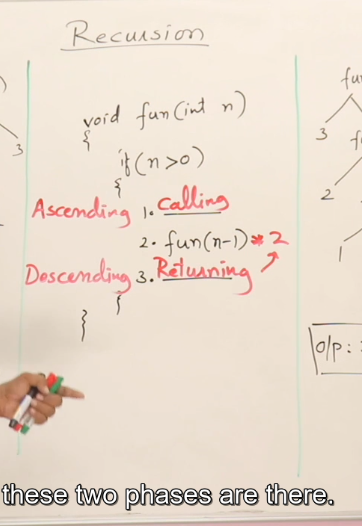 Recursion
void fun(int n)
{
if(n>0)
{
Ascending 1. Calling
2. fun(n-1) * 2
Descending 3. Returning
}
}
)
3
fu
3
f
2
1
o/p:
these two phases are there.